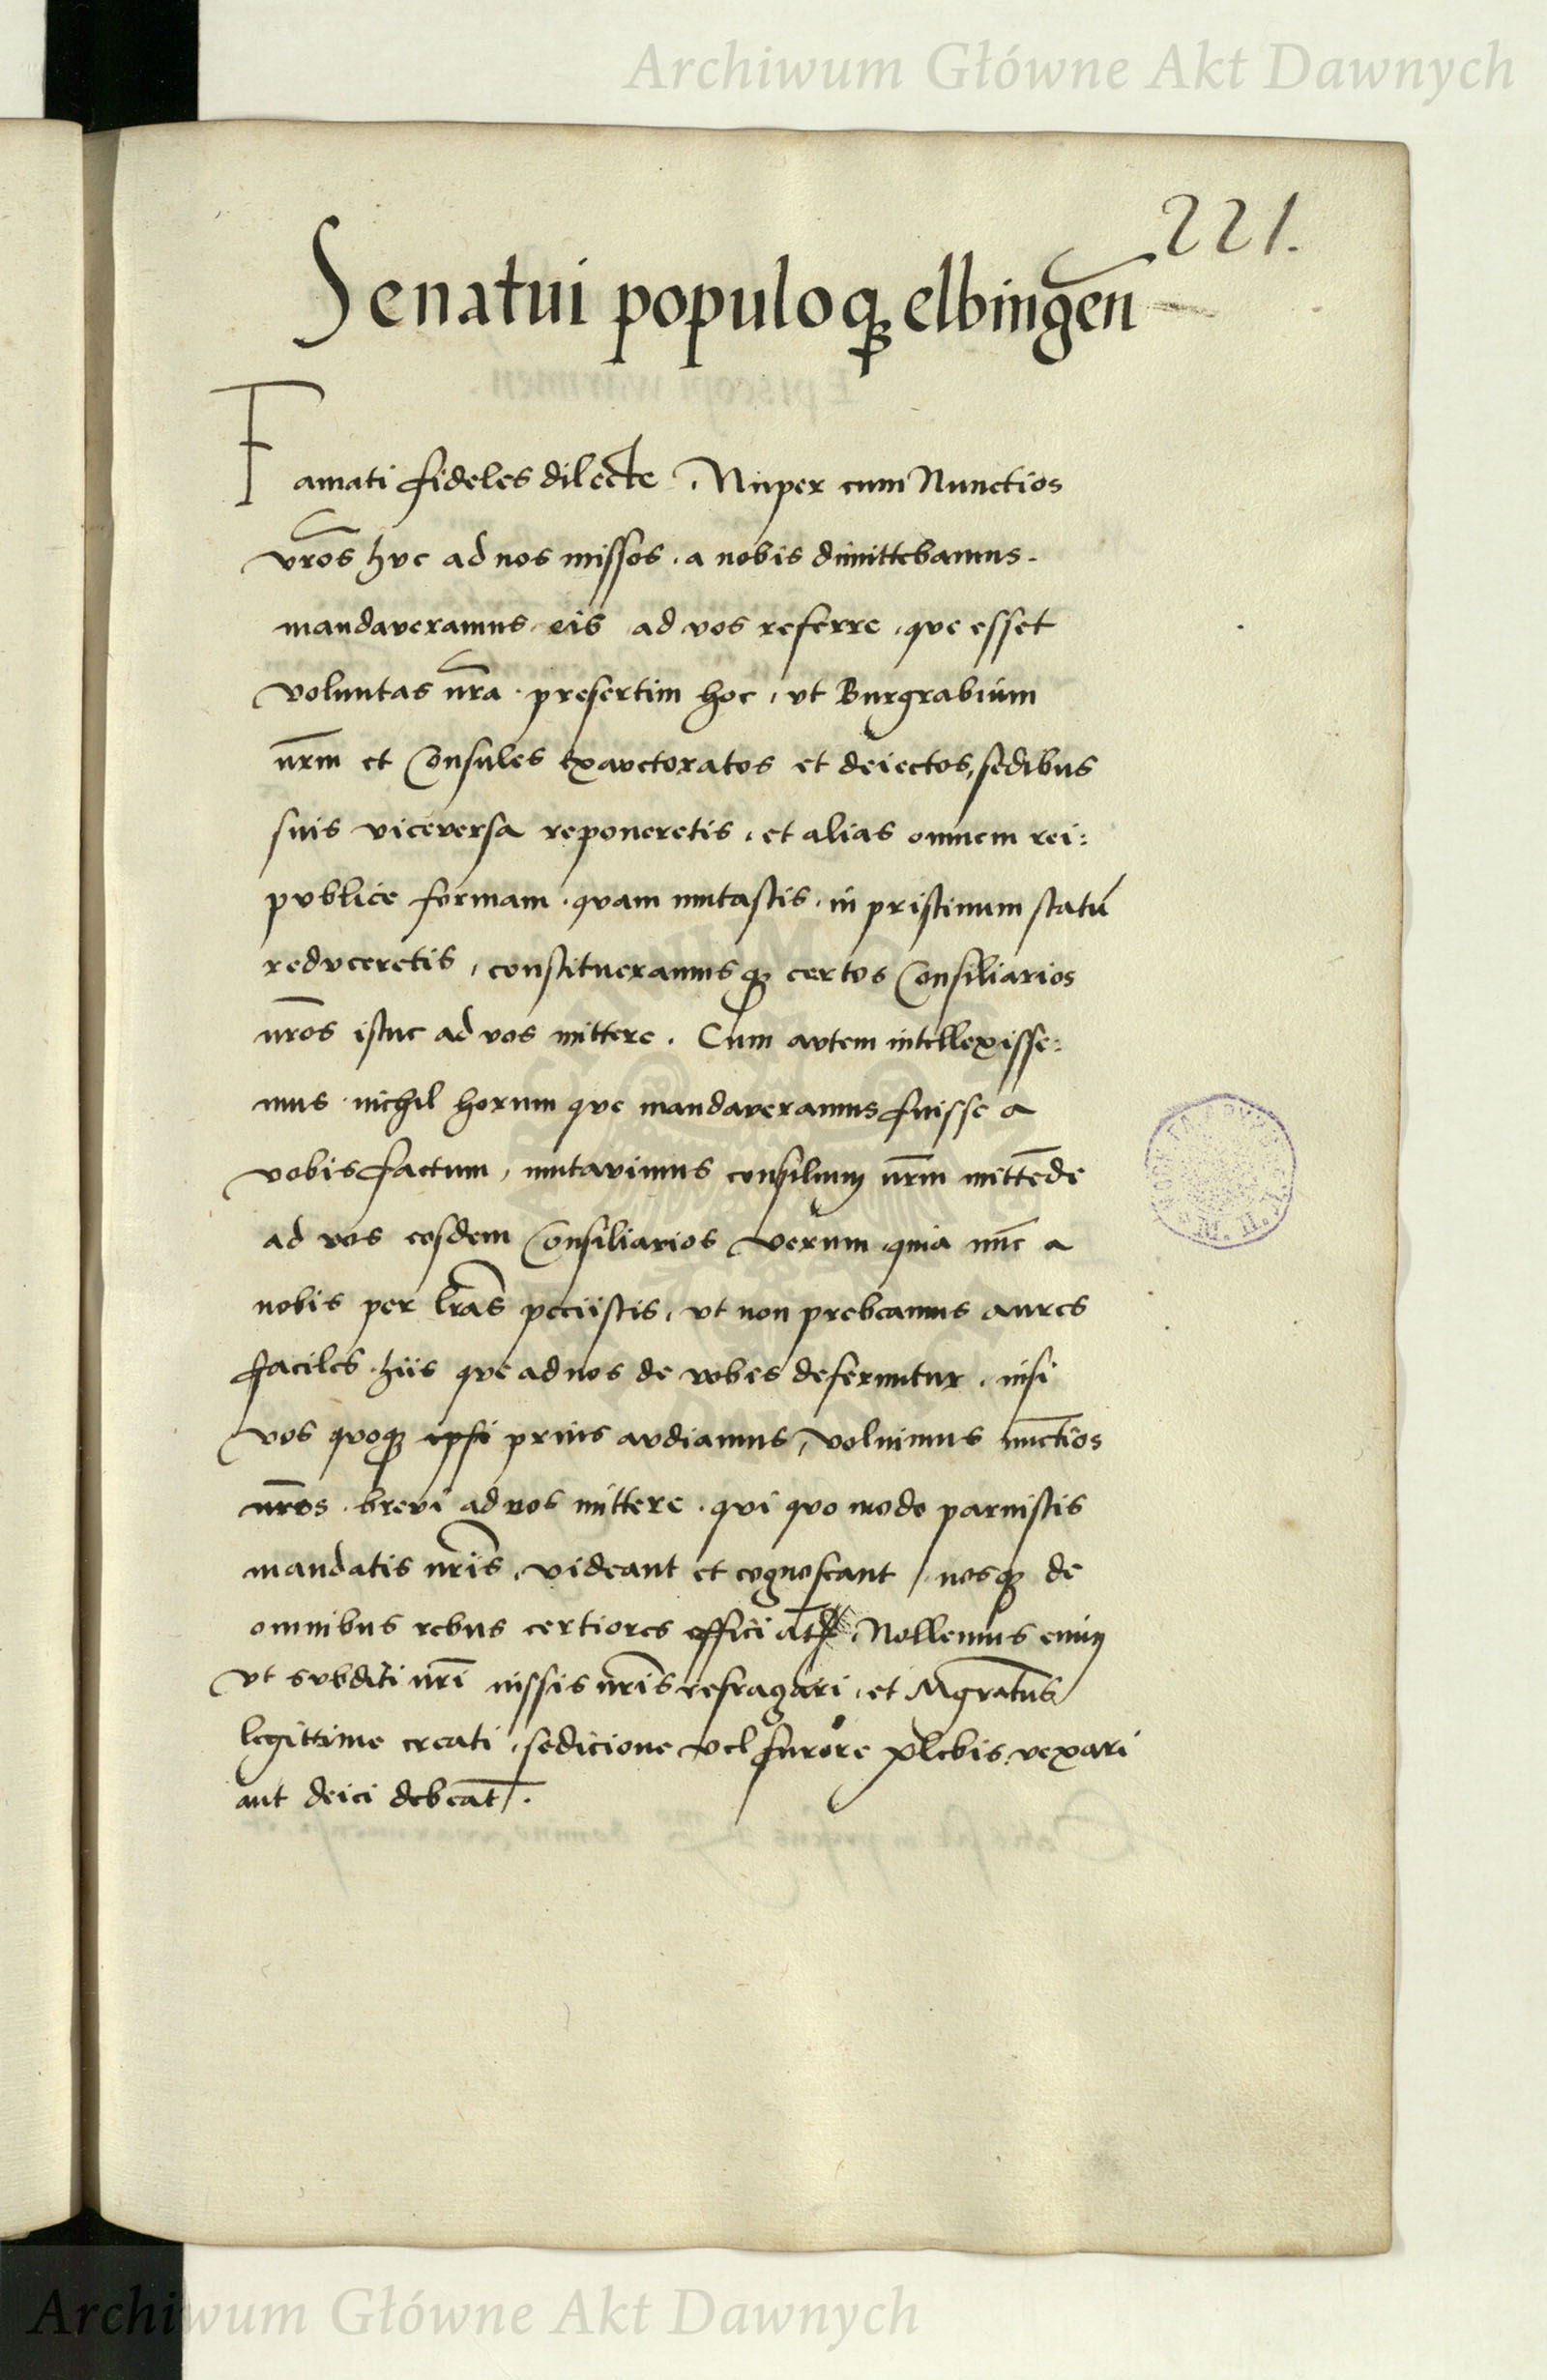 Archiwum Główne Akt Dawnych
221.
Senatui populoqꝫ elbingen̄
Famati fideles dilecte. Nuper cum Nunctios
vr̄os huc ad nos missos. a nobis dimittebamus.
mandaveramus eis ad vos referre, que esset
voluntas nr̄a. presertim hoc, vt Burgrabium
nr̄m et Consules exavctoratos et deiectos, sedibus
suis viceversa reponeretis, et alias omnem rei:
pvblice formam. quam mutastis. in pristinum statū
redvceretis, constitueramusqꝫ certos Consiliarios
nr̄os istuc ad vos mittere. Cum avtem intellexisse:
mus nichil horum que mandaveramus fuisse a
vobis factum, mutavimus consilium nr̄m mittēde
ad vos eosdem Consiliarios Verum quia nūc a
nobis per lr̄as peciistis, vt non prebeamus aures
faciles. hiis que ad nos de vobis deferuntur. nisi
vos quoqꝫ ipsi prius avdiamus, voluimus nūctios
nr̄os. brevi ad vos mittere. qvi qvo modo paruistis
mandatis nr̄is, videant et cognoscant, nosqꝫ de
omnibus rebus certiores effici Nollemus enim
vt svbditi nr̄i iussis nr̄is refragari, et Mgr̄atus
legittime creati, sedicione vel furore plebis vexari
aut deici debeāt.
Archiwum Główne Akt Dawnych